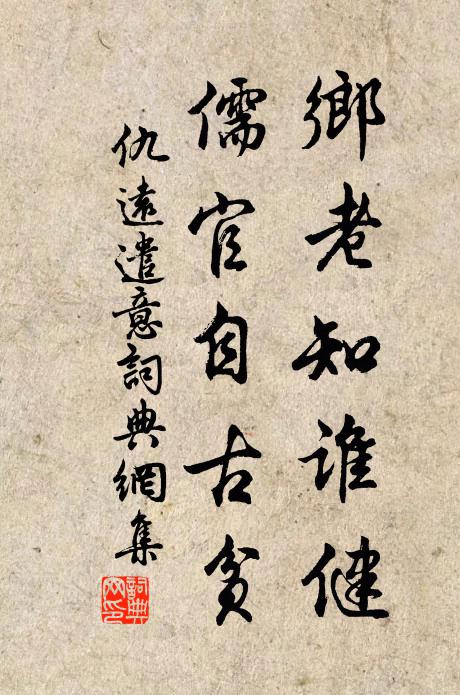 鄉老知誰健
儒官自古貧
仇遠遣意詞典網集
詞典网印